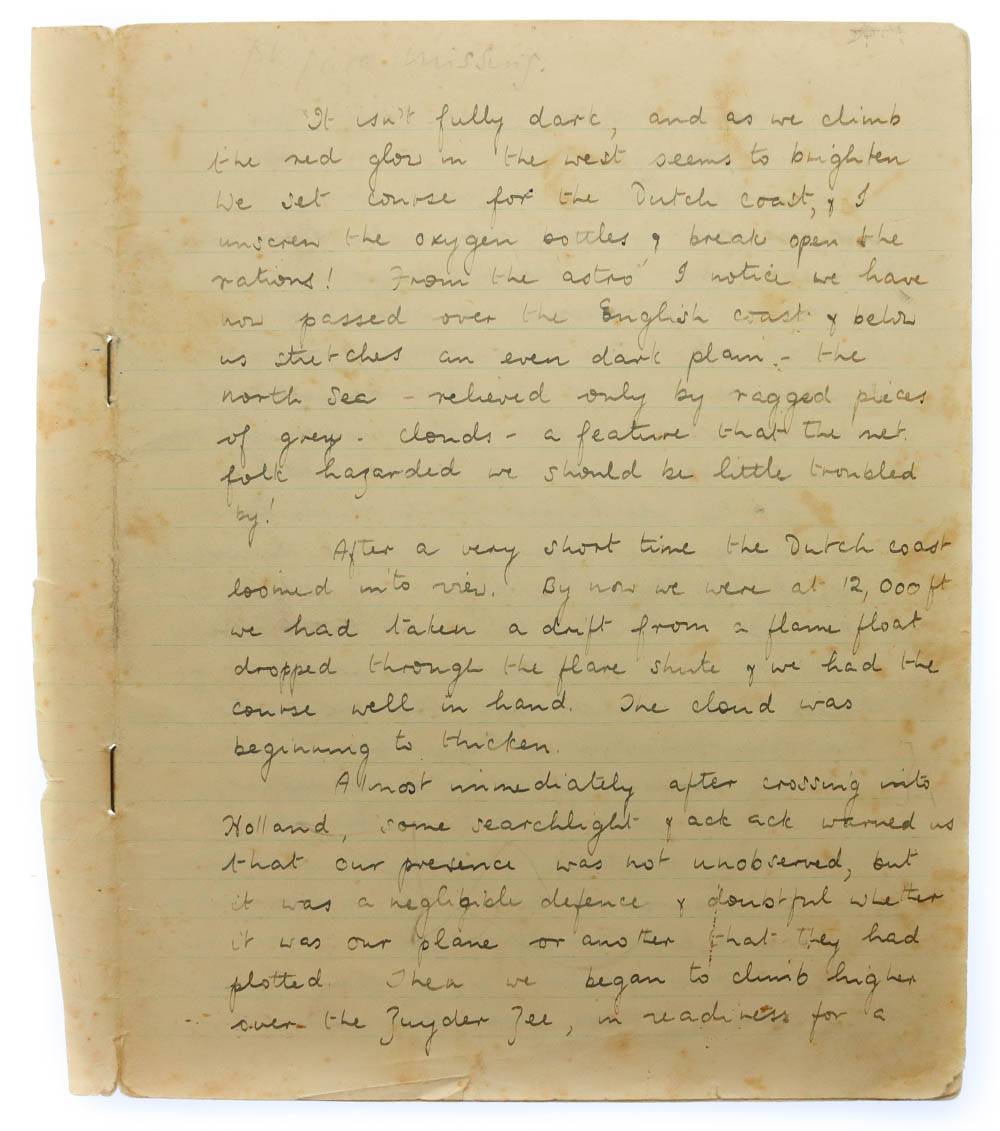 page missing.
It isn't fully dark, and as we climb
the red glow in the west seems to brighten
We set course for the Dutch coast, & I
unscrew the oxygen bottles, & break open the
rations! From the "astro" I notice we have
now passed over the English coast & below
us stretches an even dark plain - the
north sea - relieved only by ragged pieces
of grey - clouds - a feature that the met.
folk hazarded we should be little troubled
by!
After a very short time the Dutch coast
loomed into view. By now we were at 12,000 ft
we had taken a drift from a flame float
dropped through the flare shute & we had the
course well in hand. The cloud was
beginning to thicken.
Almost immediately after crossing into
Holland, some searchlight & ack ack warned us
that our presence was not unobserved, but
it was a negligible defence & doubtful whether
it was our plane or another that they had
plotted. Then we began to climb higher
over the Zuyder Zee, in readiness for a